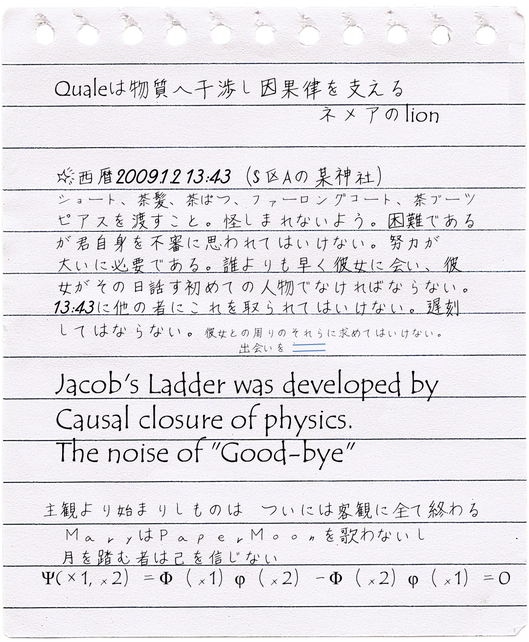 Qualeは物質へ干渉し因果律を支える
ネメアのlion
☆西暦20091212 13:43 (S区Aの某神社)
ショート、茶髪、茶ぱつ、ファーロングコート、茶ブーツ
ピアスを渡すこと。怪しまれないよう。困難である
が君自身を不審に思われてはいけない。努力が
大いに必要である。誰よりも早く彼女に会い、彼
女がその日話す初めての人物でなければならない。
13:43に他の者にこれを取られてはいけない。遅刻
してはならない。彼女との周りのそれらに求めてはいけない。
出会いを
Jacob's Ladder was developed by
Causal closure of physics.
The noise of "Good-bye"
主観より始まりしものは ついには客観に全て終わる
MaryはPaperMoonを歌わないし
月を踏む者は己を信じない
Ψ(×1, ×2) =Φ (×1) φ (×2) -Φ (×2) φ (×1) =0